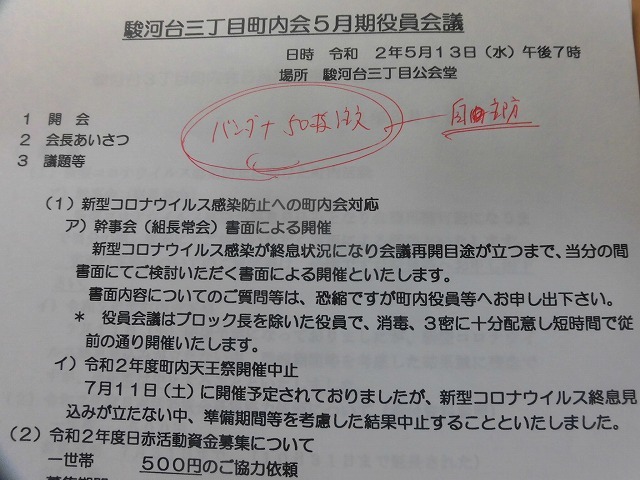 駿河台三丁目町内会5月期役員会議
日時 令和 2年5月13日(水)午後7時
場所 駿河台三丁目公会堂
1 開 会
2 会長あいさつ
3 議題等
バンダナ 50枚注文
(1)新型コロナウイルス感染防止への町内会対応
ア)幹事会(組長常会)書面による開催
新型コロナウイルス感染が終息状況になり会議再開目途が立つまで、当分の間
書面にてご検討いただく書面による開催といたします。
書面内容についてのご質問等は、恐縮ですが町内役員等へお申し出下さい。
* 役員会議はブロック長を除いた役員で、消毒、3密に十分配意し短時間で従
前の通り開催いたします。
イ)令和2年度町内天王祭開催中止
7月11日(土)に開催予定されておりましたが、新型コロナウイルス終息見
込みが立たない中、準備期間等を考慮した結果中止することといたしました。
(2)令和2年度日赤活動資金募集について
一世帯 500円のご協力依頼